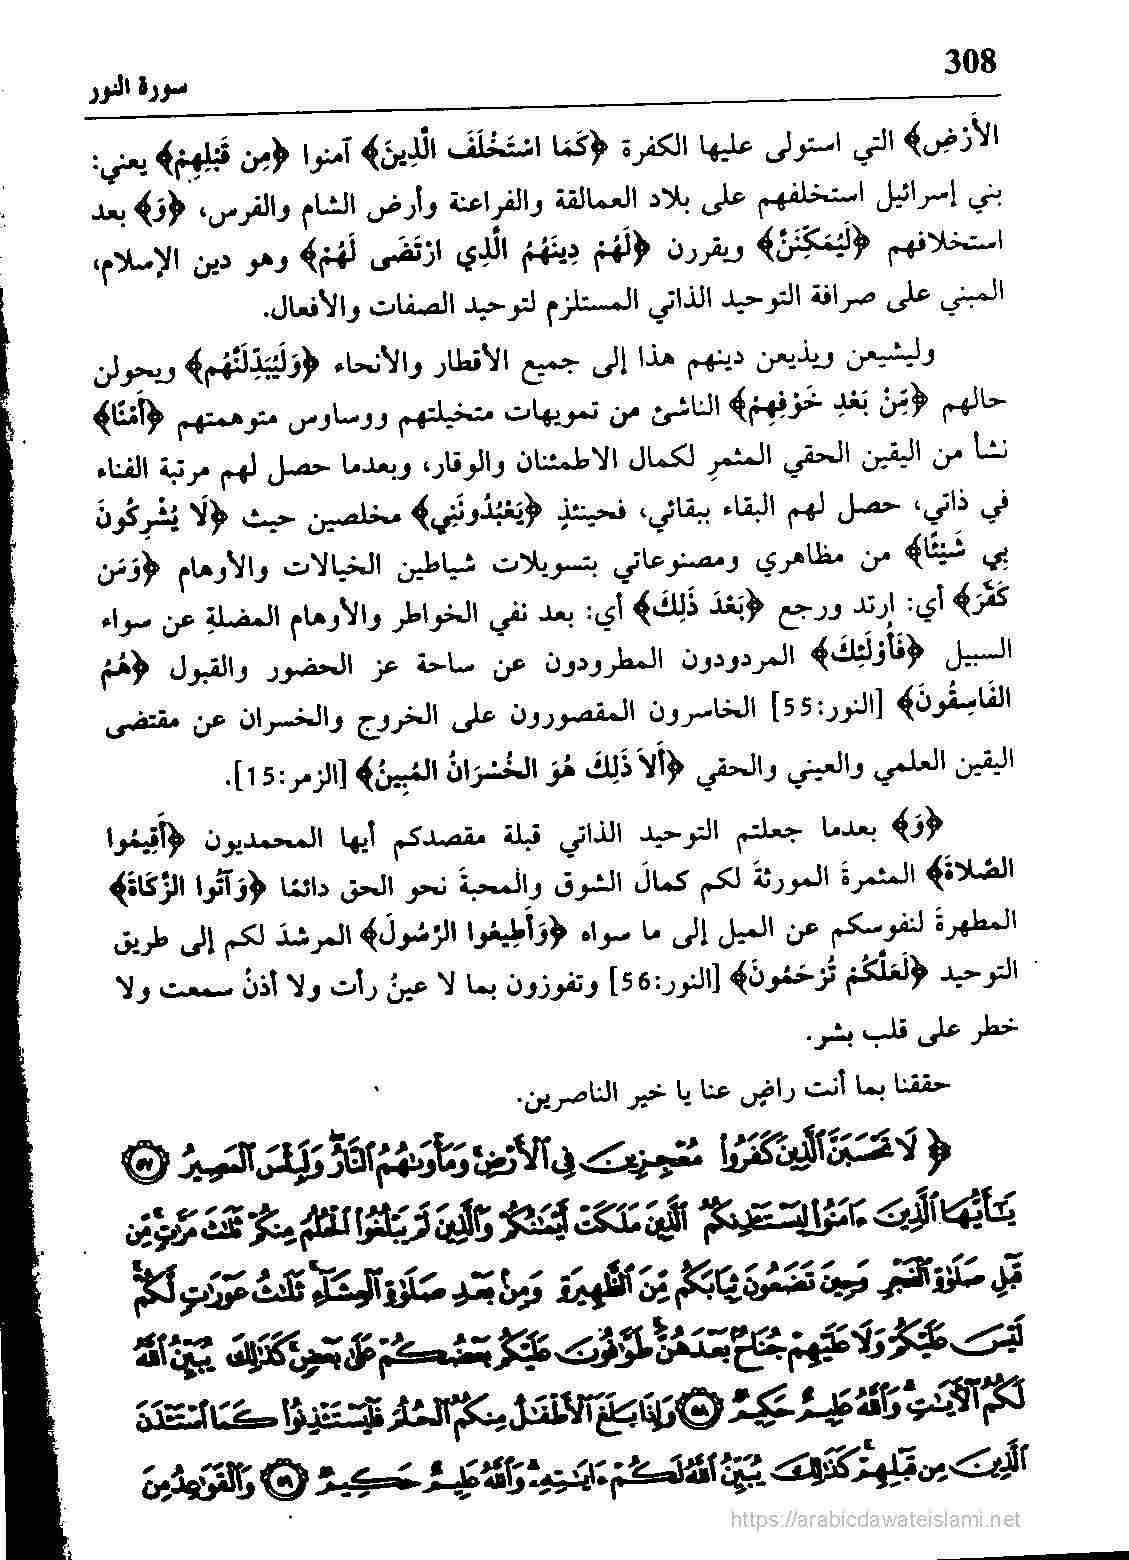 308
سورة النور
الأَرْضِ﴾ التي استولى عليها الكفرة ﴿كَمَا اسْتَخْلَفَ الَّذِينَ﴾ آمنوا ﴿مِن قَبْلِهِمْ﴾ يعني:
بني إسرائيل استخلفهم على بلاد العمالقة والفراعنة وأرض الشام والفرس، ﴿وَ﴾ بعد
استخلافهم ﴿لَيُمَكِّنَنَّ﴾ ويقررن ﴿لَهُمْ دِينَهُمُ الَّذِي ارْتَضَى لَهُمْ﴾ وهو دين الإسلام،
المبني على صرافة التوحيد الذاتي المستلزم لتوحيد الصفات والأفعال.
وليشيعن ويذيعن دينهم هذا إلى جميع الأقطار والأنحاء ﴿وَلَيُبَدِّلَنَّهُم﴾ ويحولن
حالهم ﴿مِّنْ بَعْدِ خَوْفِهِمْ﴾ الناشئ من تمويهات متخيلتهم ووساوس متوهمتهم ﴿أَمْنًا﴾
نشأ من اليقين الحقي المثمرِ لكمال الاطمئنان والوقار، وبعدما حصل لهم مرتبة الفناء
في ذاتي، حصل لهم البقاء ببقائي، فحينئذٍ ﴿يَعْبُدُونَنِي﴾ مخلصين حيث ﴿لَا يُشْرِكُونَ
بِي شَيْئًا﴾ من مظاهري ومصنوعاتي بتسويلات شياطين الخيالات والأوهام ﴿وَمَن
كَفَرَ﴾ أي: ارتد ورجع ﴿بَعْدَ ذَلِكَ﴾ أي: بعد نفي الخواطر والأوهام المضلةِ عن سواء
السبيل ﴿فَأُوْلَئِكَ﴾ المردودون المطرودون عن ساحة عز الحضور والقبول ﴿هُمُ
الفَاسِقُونَ﴾ [النور:55] الخاسرون المقصورون على الخروج والخسران عن مقتضى
اليقين العلمي والعيني والحقي ﴿أَلاَ ذَلِكَ هُوَ الخُسْرَانُ المُبِينُ﴾ [الزمر:15].
﴿وَ﴾ بعدما جعلتم التوحيد الذاتي قبلة مقصدكم أيها المحمديون ﴿أَقِيمُوا
الصَّلاةَ﴾ المثمرةَ المورثةَ لكم كمالَ الشوق والمحبةَ نحو الحق دائمًا ﴿وَآتُوا الزَّكَاةَ﴾
المطهرةَ لنفوسكم عن الميل إلى ما سواه ﴿وَأَطِيعُوا الرَّسُولَ﴾ المرشدَ لكم إلى طريق
التوحيد ﴿لَعَلَّكُمْ تُرْحَمُونَ﴾ [النور:56] وتفوزون بما لا عينٌ رأت ولا أذنٌ سمعت ولا
خطر على قلب بشر.
حققنا بما أنت راضٍ عنا يا خير الناصرين.
﴿ لَا تَحْسَبَنَّ ٱلَّذِينَ كَفَرُوا۟ مُعْجِزِينَ فِى ٱلْأَرْضِ ۚ وَمَأْوَىٰهُمُ ٱلنَّارُ ۖ وَلَبِئْسَ ٱلْمَصِيرُ ٥٧
يَـٰٓأَيُّهَا ٱلَّذِينَ ءَامَنُوا۟ لِيَسْتَـْٔذِنكُمُ ٱلَّذِينَ مَلَكَتْ أَيْمَـٰنُكُمْ وَٱلَّذِينَ لَمْ يَبْلُغُوا۟ ٱلْحُلُمَ مِنكُمْ ثَلَـٰثَ مَرَّٰتٍ ۚ مِّن
قَبْلِ صَلَوٰةِ ٱلْفَجْرِ وَحِينَ تَضَعُونَ ثِيَابَكُم مِّنَ ٱلظَّهِيرَةِ وَمِنۢ بَعْدِ صَلَوٰةِ ٱلْعِشَآءِ ۚ ثَلَـٰثُ عَوْرَٰتٍ لَّكُمْ ۚ
لَيْسَ عَلَيْكُمْ وَلَا عَلَيْهِمْ جُنَاحٌۢ بَعْدَهُنَّ ۚ طَوَّٰفُونَ عَلَيْكُم بَعْضُكُمْ عَلَىٰ بَعْضٍ ۚ كَذَٰلِكَ يُبَيِّنُ ٱللَّهُ
لَكُمُ ٱلْـَٔايَـٰتِ ۗ وَٱللَّهُ عَلِيمٌ حَكِيمٌ ٥٨ وَإِذَا بَلَغَ ٱلْأَطْفَـٰلُ مِنكُمُ ٱلْحُلُمَ فَلْيَسْتَـْٔذِنُوا۟ كَمَا ٱسْتَـْٔذَنَ
ٱلَّذِينَ مِن قَبْلِهِمْ ۚ كَذَٰلِكَ يُبَيِّنُ ٱللَّهُ لَكُمْ ءَايَـٰتِهِۦ ۗ وَٱللَّهُ عَلِيمٌ حَكِيمٌ ٥٩ وَٱلْقَوَٰعِدُ مِنَ
https://arabicdawateislami.net